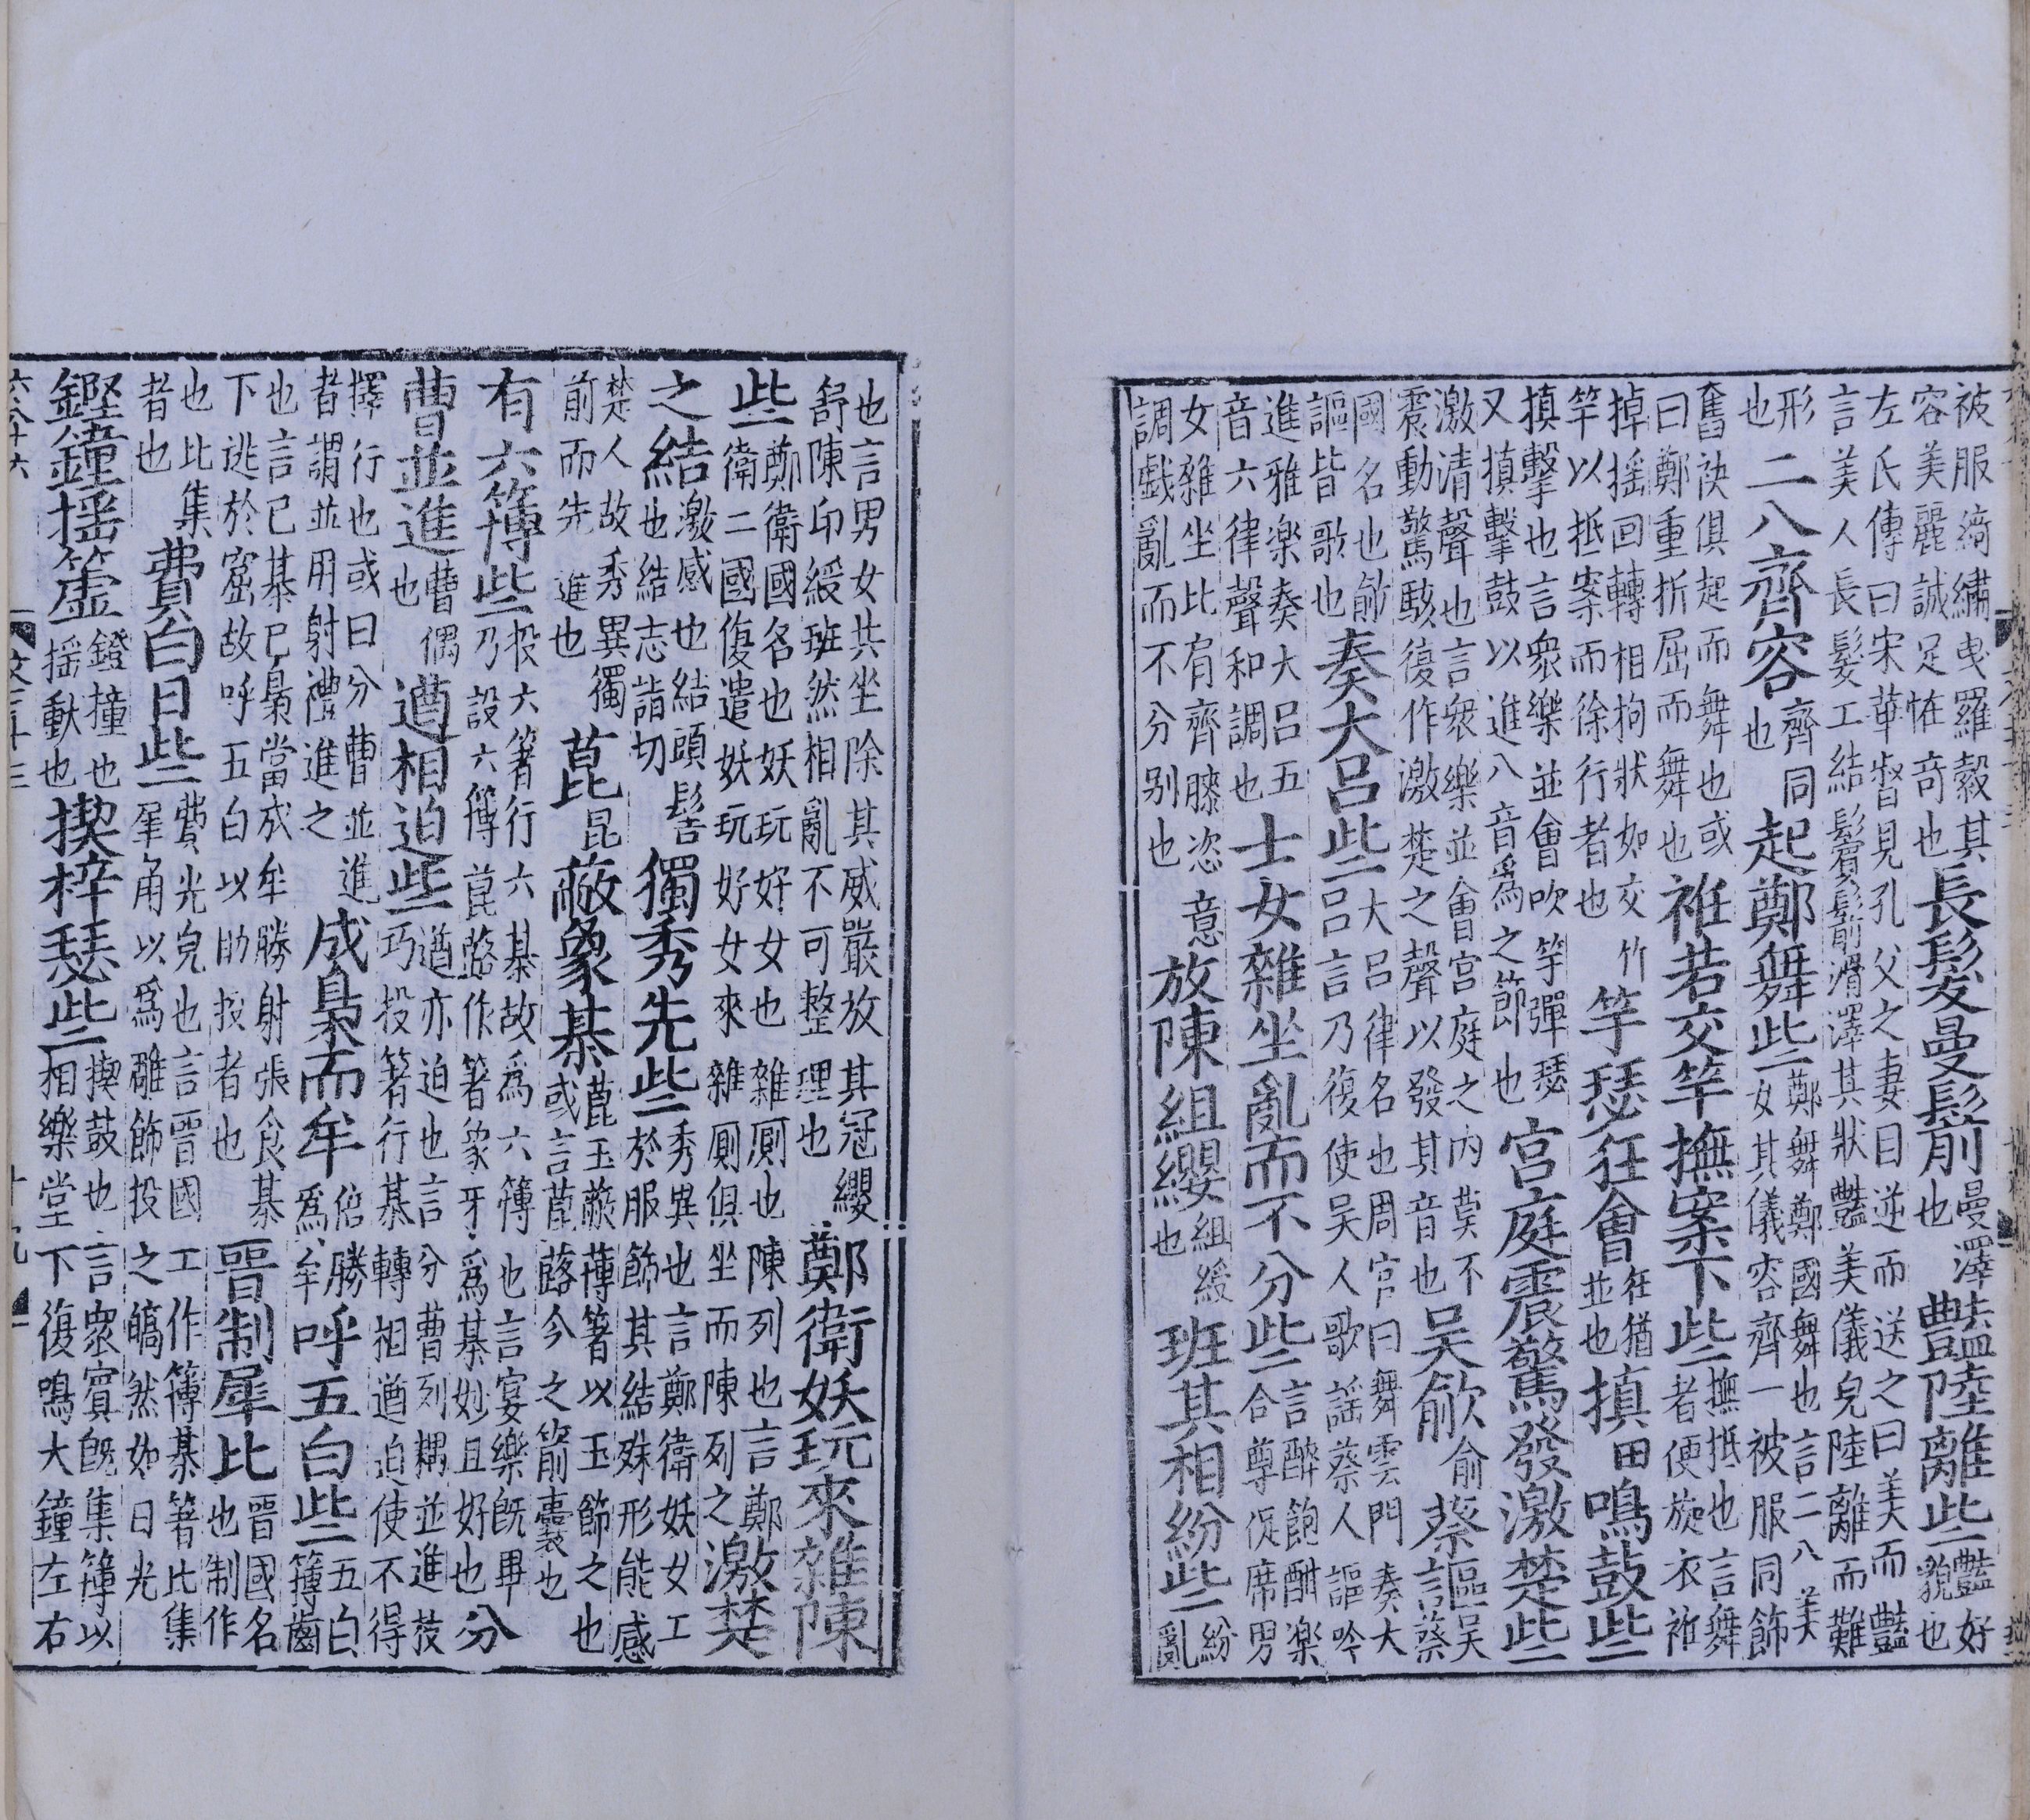 被服綺繡曳羅縠其容美麗誠足恠奇也長髮曼鬋曼澤也豔陸離些豔好貌也
左氏傳曰宋華督見孔父之妻目逆而送之曰美而豔言美人長髮工結鬢鬋滑澤其狀豔美儀皃陸離而難
形也二八齊容齊同也起鄭舞些鄭舞鄭國舞也言二八美女其儀容齊一被服同飾
奮袂俱起而舞也或曰鄭重折屈而舞也衽若交竿撫案下些撫抵也言舞者便旋衣衽
掉揺回轉相拘狀如交竹竿以抵案而徐行者也竽瑟狂會狂猶並也搷田鳴鼓些
搷擊也言衆樂並會吹竽彈瑟又搷擊鼓以進八音爲之節也宫庭震驚發激楚些
激清聲也言衆樂並會宫庭之内莫不震動驚駭復作激楚之聲以發其音也吳歈俞蔡謳吳蔡
國名也歈謳皆歌也奏大吕些大吕律名也周官曰舞雲門奏大吕言乃復使吳人歌謡蔡人謳吟
進雅楽奏大吕五音六律聲和調也士女雜坐亂而不分些言醉飽酣楽合尊促席男
女雜坐比肩齊膝恣意調戲亂而不分别也放陳組纓組綬也班其相紛些紛亂
也言男女共坐除其威嚴放其冠纓舒陳印綬班然相亂不可整理也鄭衛妖玩來雜陳
些鄭衛國名也妖玩好女也雜厠也陳列也言鄭衛二國復遣妖玩好女來雜厠俱坐而陳列之激楚
之結激感也結頭髻也結志詣切獨秀先些秀異也言鄭衛妖女工於服飾其結殊形能感
楚人故秀異獨前而先進也菎昆蔽象棊菎玉蔽簙箸以玉飾之也或言菎蕗今之箭囊也
有六簙些投六箸行六棊故爲六簙也言宴樂旣畢乃設六簙菎蕗作箸象牙爲棊妙且好也分
曹並進曹偶也遒相迫些遒亦迫也言分曹列耦並進技巧投箸行棊轉相遒迫使不得
擇行也或曰分曹並進者謂並用射禮進之成梟而牟倍勝爲牟呼五白些五白簙齒
也言已棊已梟當成牟勝射張食棊下逃於窟故呼五白以助投者也晋制犀比晋國名也制作
也比集者也費白日些費光皃也言晋國工作簙棊箸比集犀角以爲雕飾投之皜然如日光
鏗鐘揺簴鏗撞也揺動也揳梓瑟些揳鼓也言衆賓旣集簙以相樂堂下復鳴大鐘左右